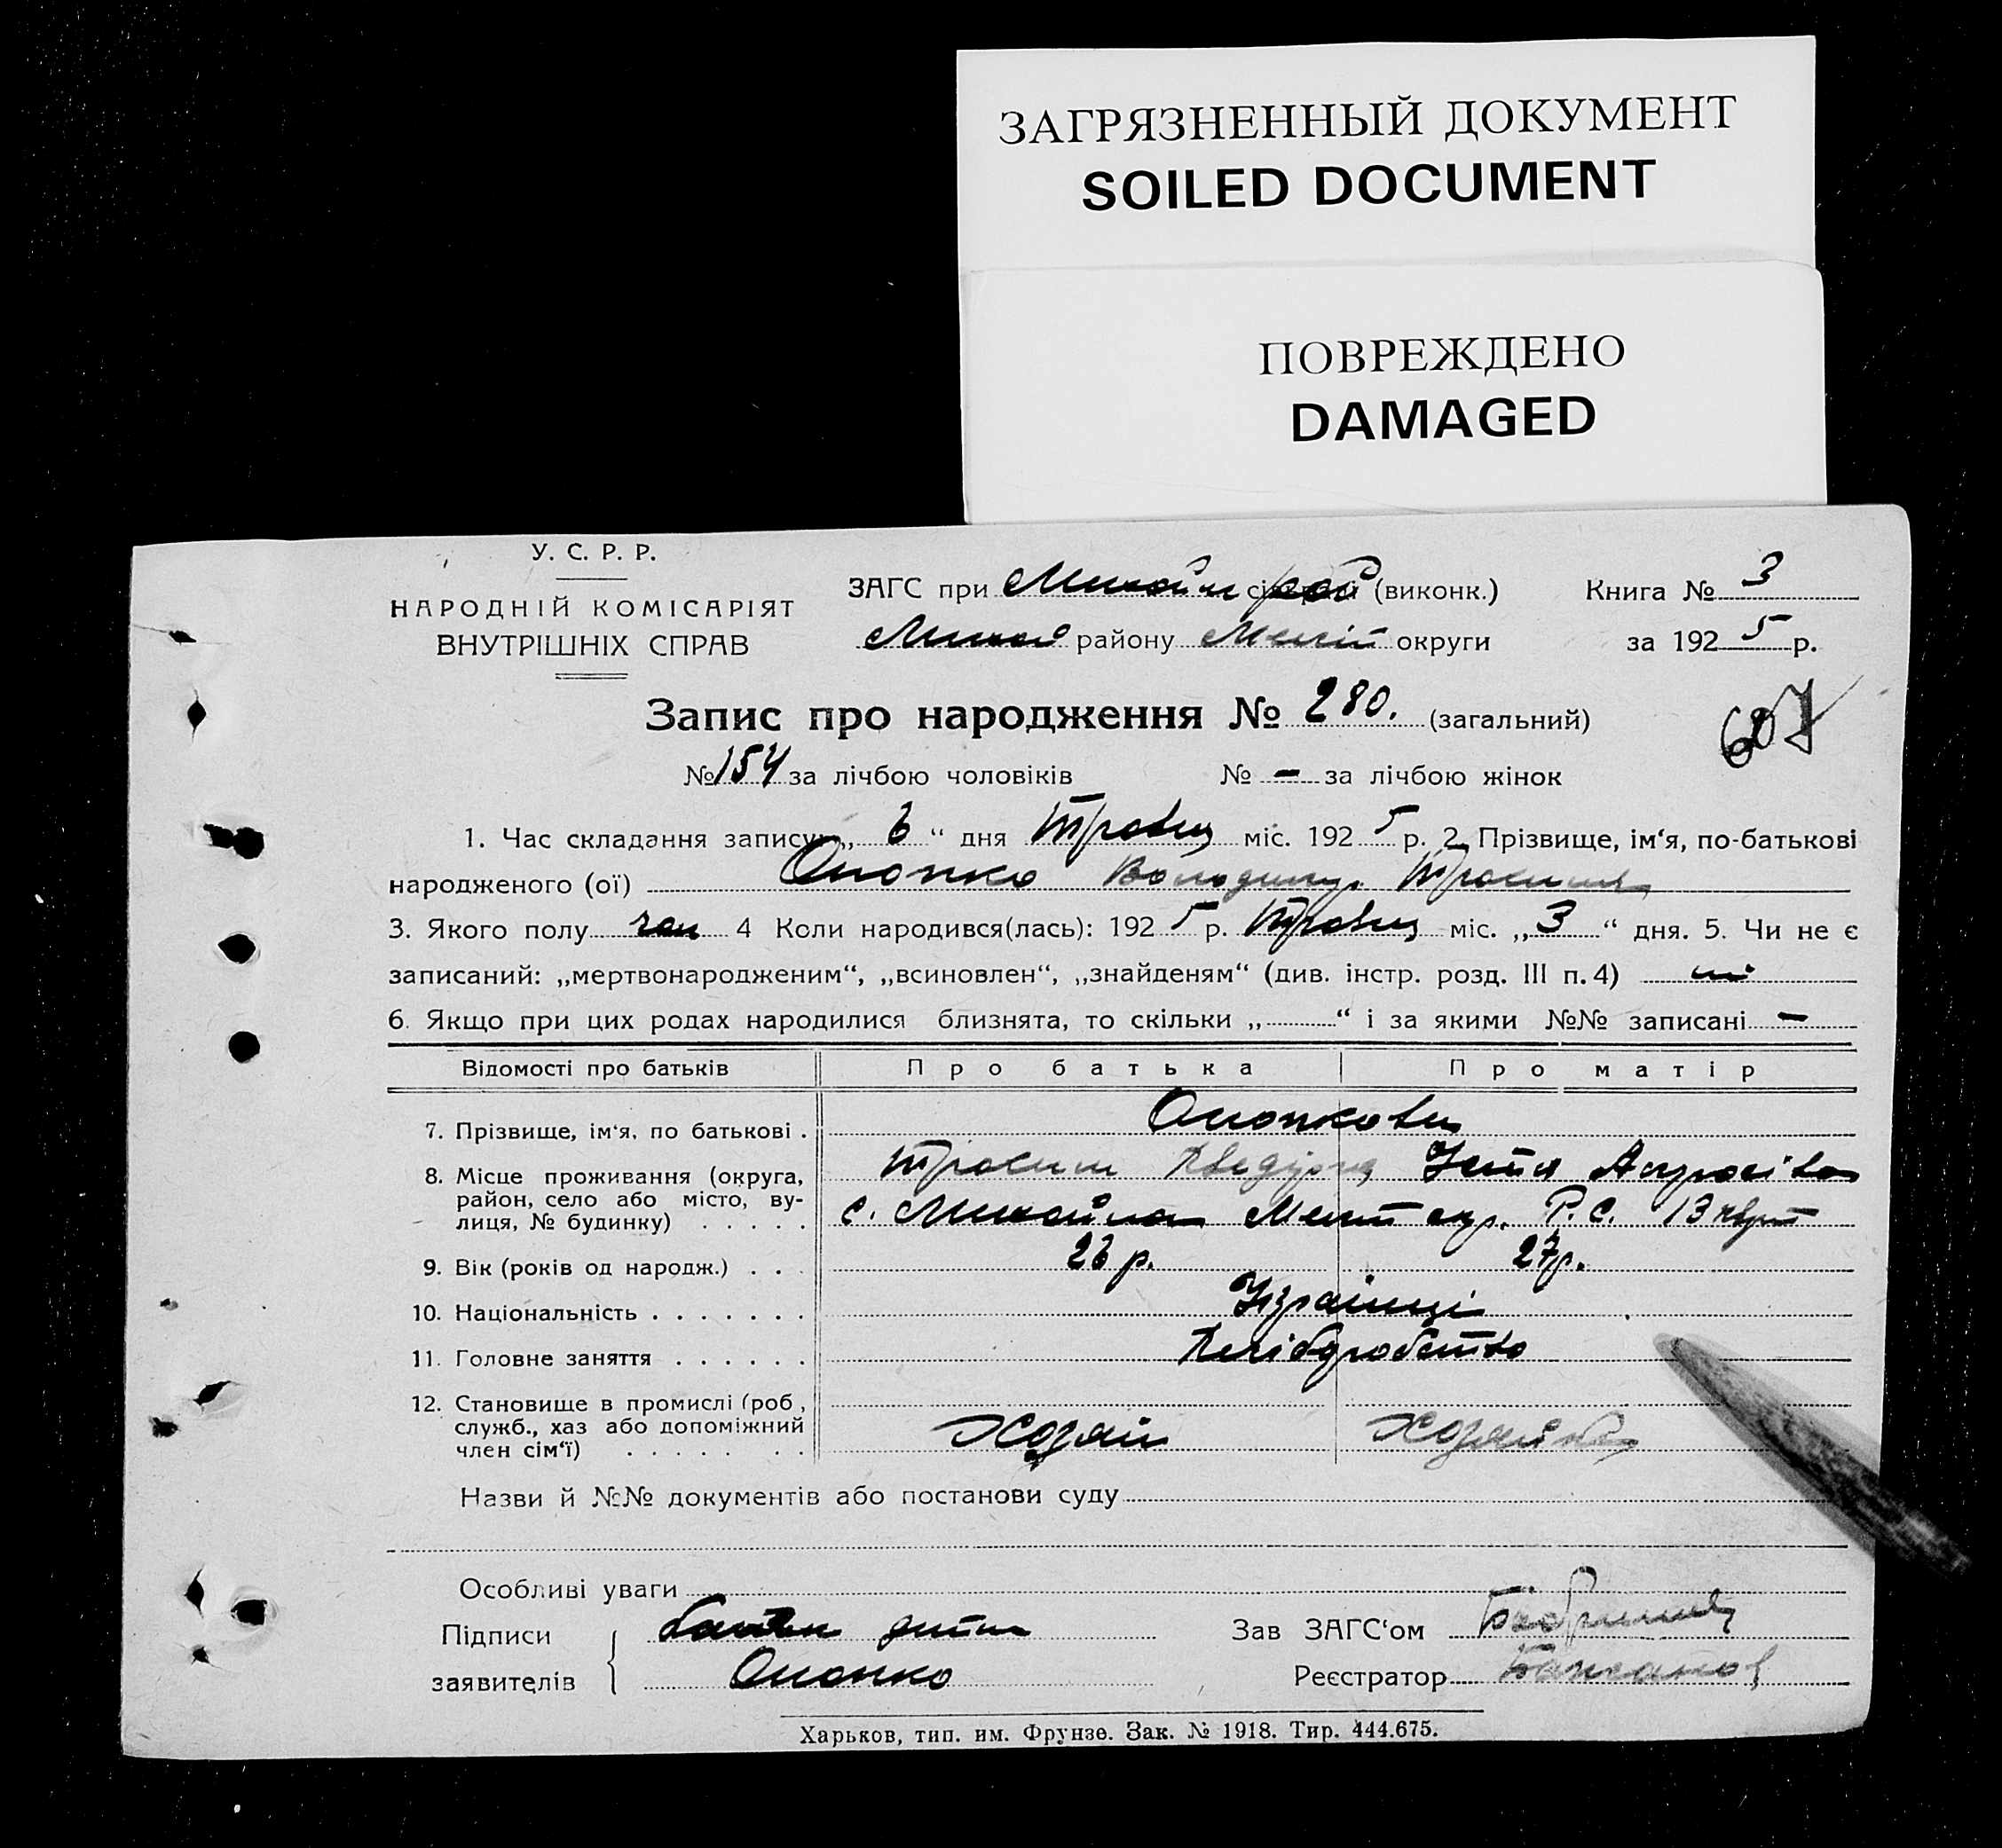 ЗАГРЯЗНЕННЫЙ ДОКУМЕНТ
SOILED DOCUMENT
ПОВРЕЖДЕНО
DAMAGED
У. С. Р. Р.
НАРОДНІЙ КОМІСАРІЯТ
ВНУТРІШНІХ СПРАВ
ЗАГС при (виконк.)
району округи
Книга № 3
за 1925 р.
Запис про народження № 280. (загальний)
№ 154 за лічбою чоловіків № — за лічбою жінок
607
1. Час складання запису: „ 6 “ дня Травня міс. 1925 р. 2. Прізвище, ім‘я, по-батькові
народженого (ої) Володимир Трохимів
3. Якого полу чол 4 Коли народився(лась): 1925 р. Травня міс. „ 3 “ дня. 5. Чи не є
записаний: „мертвонародженим“, „всиновлен“, „знайденям“ (див. інстр. розд. III п. 4) ні
6. Якщо при цих родах народилися близнята, то скільки „ “ і за якими №№ записані —
Відомості про батьків Про батька Про матір
7. Прізвище, ім‘я, по батькові .
8. Місце проживання (округа,
район, село або місто, ву-
лиця, № будинку) . . . . .
Трохим
с. окр. Р.С. 13
9. Вік (років од народж.) . . . 26 р. 27 р.
10. Національність . . . . . . . Українці
11. Головне заняття . . . . . . Хліборобство
12. Становище в промислі (роб.,
служб., хаз або допоміжний
член сім‘ї) . . . . . . . .
Хозяїн Хозяйка
Назви й №№ документів або постанови суду
Особливі уваги
Підписи
заявителів
Зав ЗАГС‘ом
Реєстратор
Харьков, тип. им. Фрунзе. Зак. № 1918. Тир. 444.675.